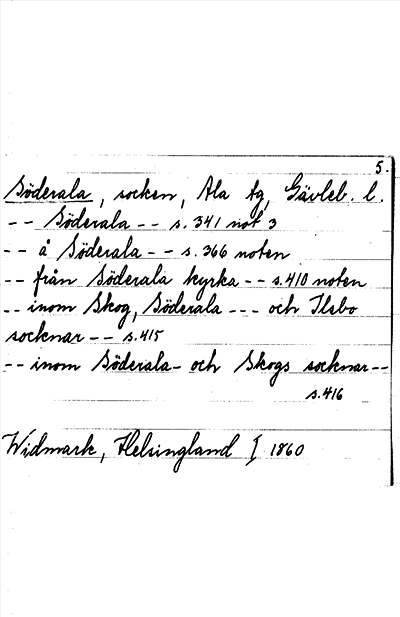 5.
Söderala, socken, Ala tg, Gävleb. l.
-- Söderala -- s. 341 not 3
-- å Söderala -- s. 366 noten
-- från Söderala kyrka -- s. 410 noten
-- inom Skog, Söderala --- och Ilsbo
socknar -- s. 415
-- inom Söderala- och Skogs socknar --
s. 416
Widmark, Helsingland I 1860